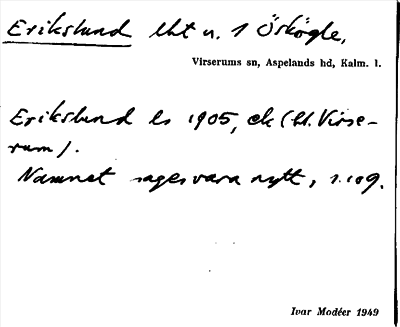 Erikslund lht u. 1 Öskögle,
Virserums sn, Aspelands hd, Kalm. l.
Erikslund ls 1905, ek (bl. Virse-
rum).
Namnet sages vara nytt, s. 109.
Ivar Modéer 1949